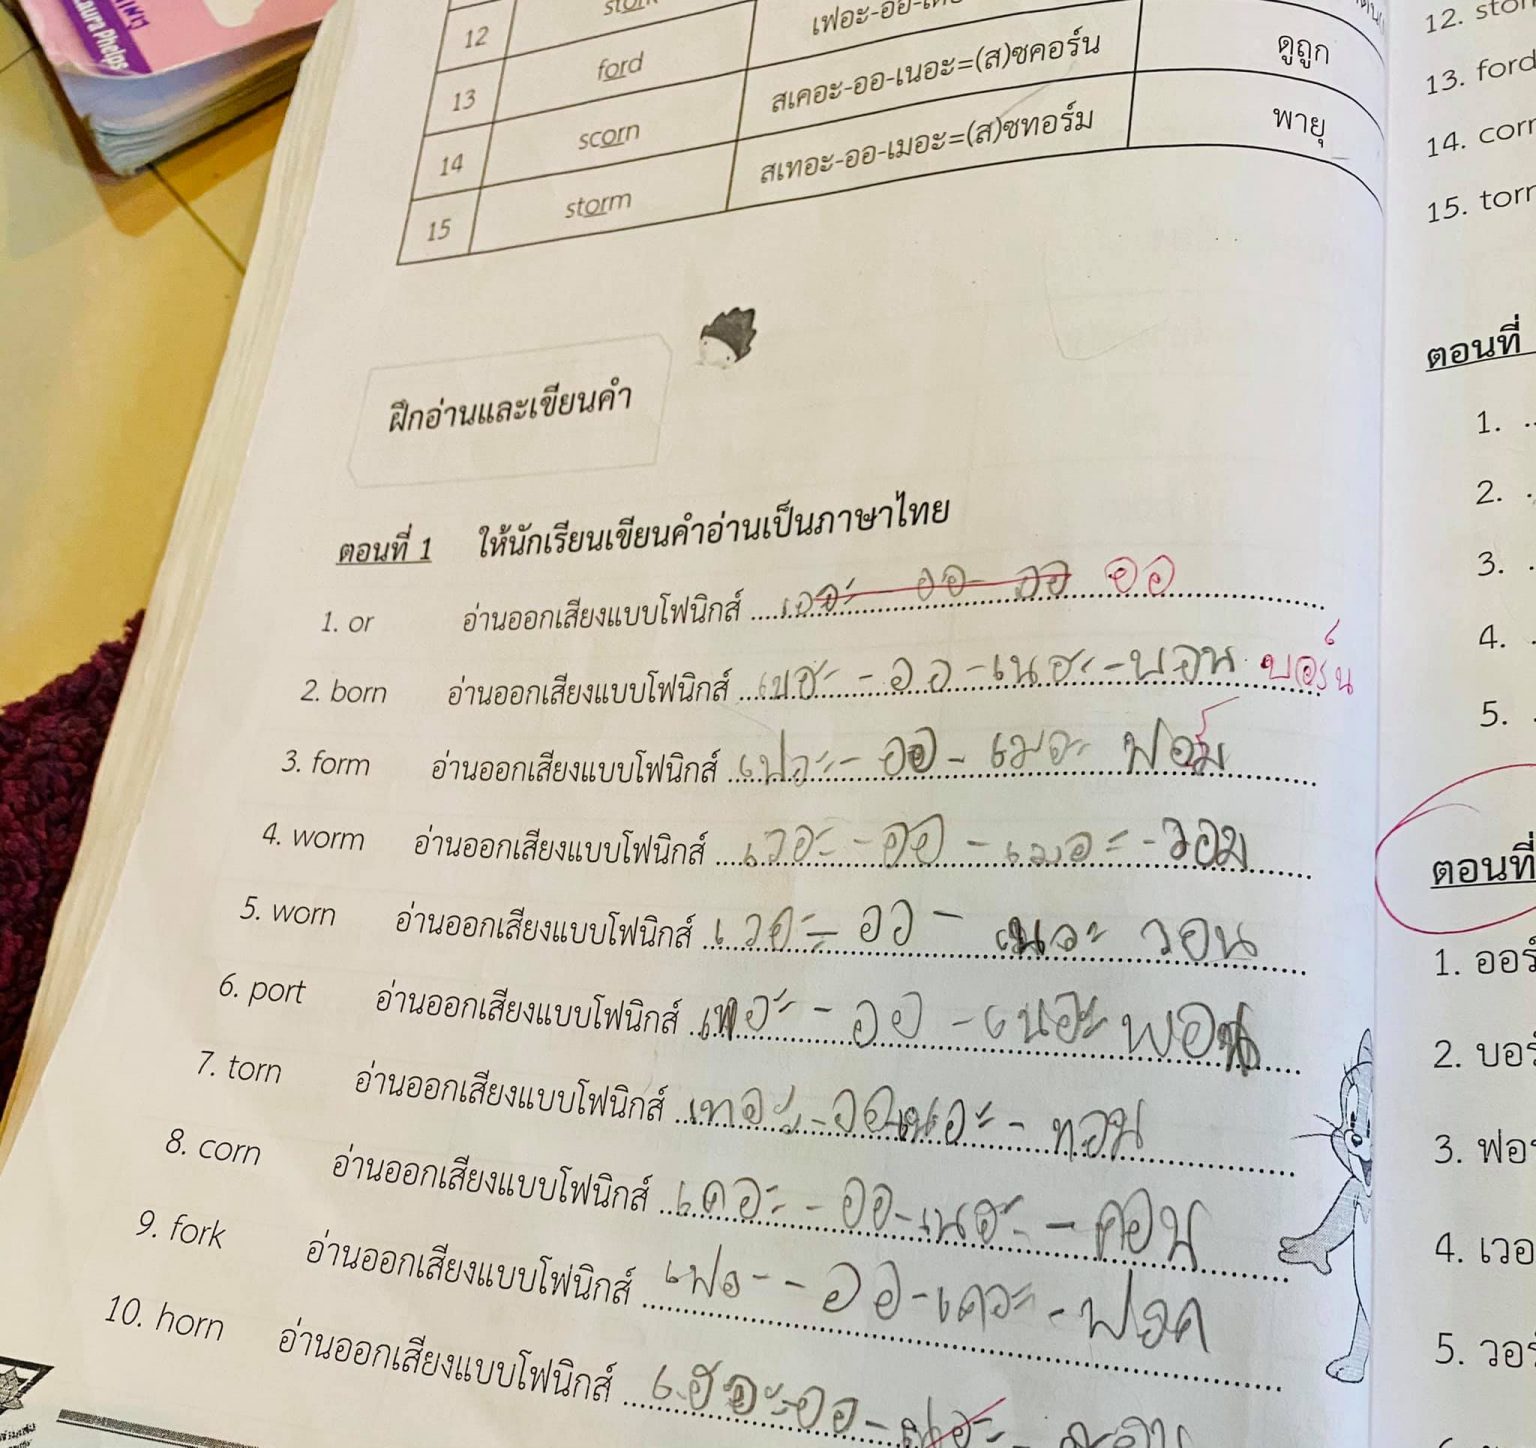 Laura Phelps
12 stork เฟอะ-ออ-
13 ford สเคอะ-ออ-เนอะ=(ส)ซคอร์น ดูถูก
14 scorn สเทอะ-ออ-เมอะ=(ส)ซทอร์ม พายุ
15 storm
ฝึกอ่านและเขียนคำ
ตอนที่ 1 ให้นักเรียนเขียนคำอ่านเป็นภาษาไทย
1. or อ่านออกเสียงแบบโฟนิกส์ เออะ ออ ออ ออ
2. born อ่านออกเสียงแบบโฟนิกส์ เบอะ - ออ - เนอะ - บอน บอร์น
3. form อ่านออกเสียงแบบโฟนิกส์ เฟอะ - ออ - เมอะ ฟอร์ม
4. worm อ่านออกเสียงแบบโฟนิกส์ เวอะ - ออ - เมอะ - วอม
5. worn อ่านออกเสียงแบบโฟนิกส์ เวอะ - ออ - เนอะ วอน
6. port อ่านออกเสียงแบบโฟนิกส์ เพอะ - ออ - เนอะ พอน
7. torn อ่านออกเสียงแบบโฟนิกส์ เทอะ - ออ เนอะ - ทอน
8. corn อ่านออกเสียงแบบโฟนิกส์ เคอะ - ออ - เนอะ - คอน
9. fork อ่านออกเสียงแบบโฟนิกส์ เฟอะ - ออ - เคอะ - ฟอค
10. horn อ่านออกเสียงแบบโฟนิกส์ เฮอะ - ออ -
12.
13. ford
14.
15.
ตอนที่
1.
2.
3.
4.
5.
ตอนที่
1.
2.
3.
4.
5.